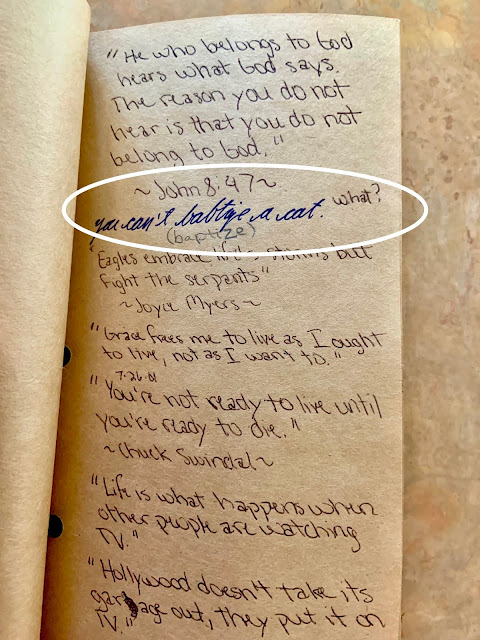 "He who belongs to God
hears what God says.
The reason you do not
hear is that you do not
belong to God."
~John 8:47~
you can't babtize a cat. what?
(baptize)
"Eagles embrace life's storms but
fight the serpants"
~Joyce Myers~
"Grace frees me to live as I ought
to live, not as I want to."
7-26-01
"You're not ready to live until
you're ready to die."
~Chuck Swindal~
"Life is what happens when
other people are watching
TV."
"Hollywood doesn't take its
garbage out, they put it on
TV."